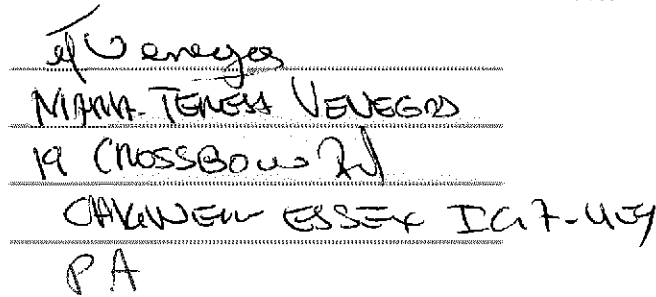 Venegas
MARIA-TERESA VENEGAS
19 CROSSBOW Rd
CHIGWELL ESSEX IG7-4EY
PA